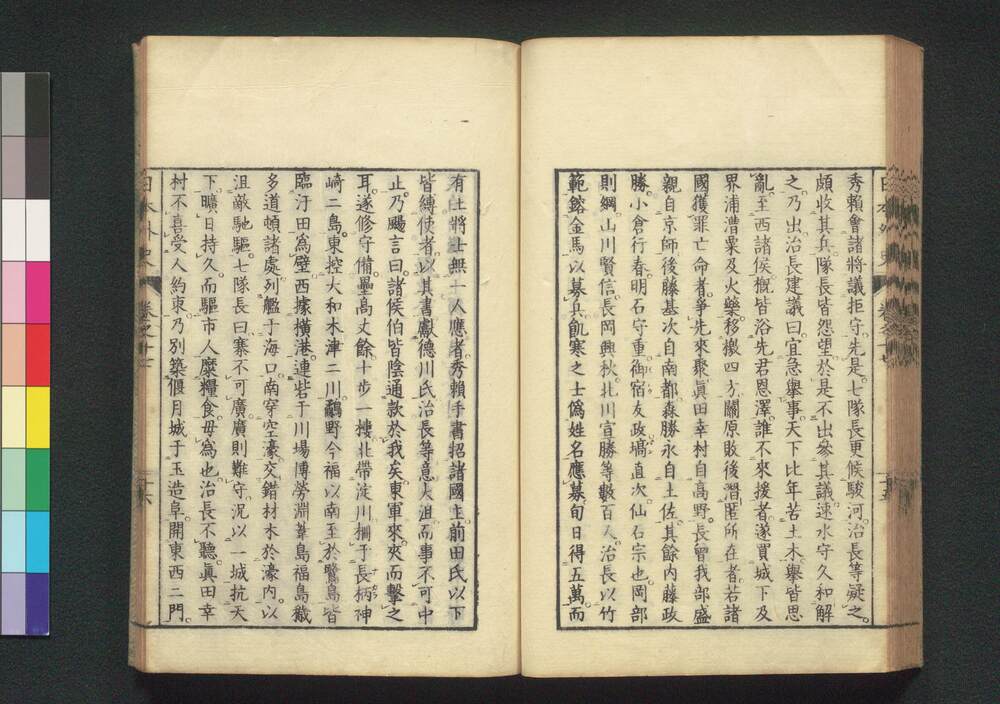 秀賴會諸將議拒守。先是。七隊長更候駿河。治長等疑之。
頗收其兵。隊長皆怨望。於是不出參其議。速水守久和解
之。乃出。治長建議曰。宜急舉事。天下比年苦土木。舉皆思
亂。至西諸侯。概皆浴先君恩澤。誰不來援者。遂買城下及
界浦漕粟及火藥。移檄四方。關原敗後潛匿所在者。若諸
國獲罪亡命者。爭先來聚。眞田幸村自高野。長曾我部盛
親自京師。後藤基次自南都。森勝永自土佐。其餘內藤政
勝。小倉行春。明石守重。御宿友政。塙直次。仙石宗也。岡部
則綱。山川賢信。長岡興秋。北川宣勝等數百人。治長以竹
範鎔金馬。以募兵。飢寒之士。僞姓名應募。旬日得五萬。而
有土將士無一人應者。秀賴手書招諸國主。前田氏以下
皆縛使者。以其書獻德川氏。治長等意大沮。而事不可中
止。乃颺言曰。諸侯伯皆陰通款於我矣。東軍來。夾而擊之
耳。遂修守備。壘高丈餘。十步一樓。北帶淀川。柵于長柄神
崎二島。東控大和木津二川。鷸野今福以南至於鷺島。皆
臨汙田爲壁。西據橫港。連砦于川場博勞淵葦島福島穢
多道頓諸處。列艦于海口。南穿空濠。交錯材木於濠內。以
沮敵馳驅。七隊長曰。寨不可廣。廣則難守。況以一城抗天
下。曠日持久。而驅市人麋糧食。毋爲也。治長不聽。眞田幸
村不喜受人約束。乃別築偃月城于玉造阜。開東西二門。
日本外史
卷之廿
十六